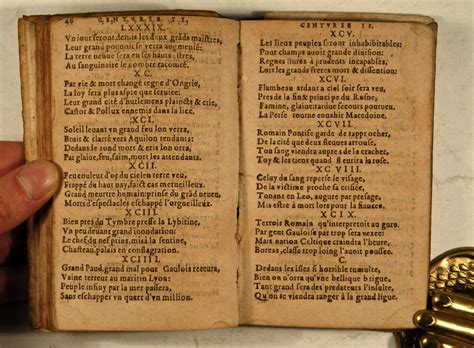 46 CENTURIE II.
LXXXIX.
Vn iour seront demis les deux grãds maistres,
Leur grand pouuoir se verra augmenté:
La terre neuue sera en ses hauts estres,
Au sanguinaire le nombre racompté.
XC.
Par vie & mort changé regne d'Ongrie,
La loy sera plus aspre que seruice:
Leur grand cité d'hurlemens plaincts & crie,
Castor & Pollux ennemis dans la lice.
XCI.
Soleil leuant vn grand feu lon verra,
Bruit & clarté vers Aquilon tendants:
Dedans le rond mort & cris lon orra,
Par glaiue, feu, faim, mort les attendants.
XCII.
Feu couleur d'or du ciel en terre veu,
Frappé du haut nay, faict cas merueilleux.
Grand meurtre humain: prinse du grãd neueu,
Morts d'spectacles eschappé l'orgueilleux.
XCIII.
Bien pres du Tymbre presse la Lybitine,
Vn peu deuant grand inondation:
Le chef du nef prins, mis à la sentine,
Chasteau, palais en conflagration.
XCIIII.
Grand Pau, grand mal pour Gaulois receura,
Vaine terreur au maritin Lyon:
Peuple infiny par la mer passera,
Sans eschapper vn quart d'vn million.
CENTVRIE II.
XCV.
Les lieux peuplez seront inhabitables:
Pour champs auoir grand diuision:
Regnes liurez à prudents incapables,
Lors les grands freres mort & dissention.
XCVI.
Flambeau ardant a ciel soir sera veu,
Pres de la fin & principe du Rosne,
Famine, glaiue: tardue secours pourueu,
La Perse tourne enuahir Macedoine.
XCVII.
Romain Pontife garde de t'approcher,
De la cité que deux fleuues arrouse,
Ton sang viendra aupres de là cracher,
Toy & les tiens quand fleurira la rose.
XCVIII.
Celuy du sang reperse le visage,
De la victime proche sacrifice,
Tonant en Leo, augure par presage,
Mis estre à mort lors pour la fiancee.
XCIX.
Terroir Romain qu'interpretoit augure,
Par gent Gauloise par trop sera vexee:
Mais nation Celtique craindra l'heure,
Boreas, classe trop loing l'auoit poussee.
C.
Dedans les isles si horrible tumulte,
Bien on n'orra qu'vne bellique brigue,
Tant grand sera des predateurs l'insulte,
Qu'on se viendra ranger à la grand ligue.